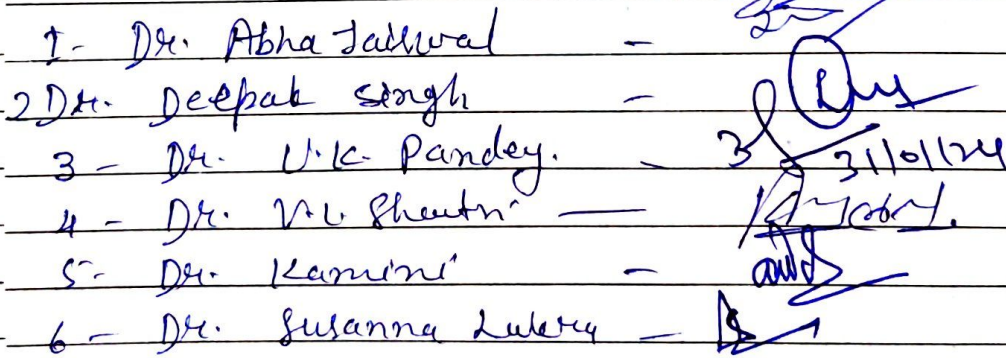 1- Dr. Abha Jaiswal -
2 Dr. Deepak Singh -
3 - Dr. U.K. Pandey. - 31/01/24
4 - Dr. V.L. —
5- Dr. Kamini -
6 - Dr. Susanna -